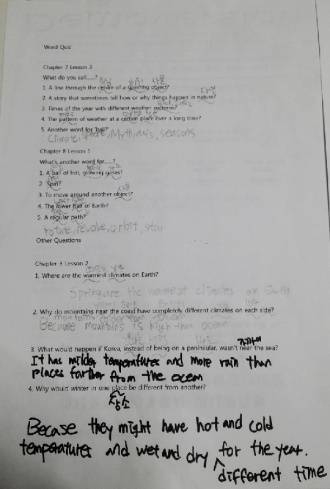 Word Quiz
Chapter 7 Lesson 3
What do you call.....?
1. A line through the centre of a spinning object?
2. A story that sometimes tell how or why things happen in nature?
3. Times of the year with different weather patterns?
4. The pattern of weather at a certain place over a long time?
5. Another word for
seasons
Chapter 8 Lesson 1
What's another word for.....?
1. A ball of hot, glowing gases?
2. Spin?
3. To move around another object?
4. The lower half of Earth?
5. A regular path?
rotate, revolve, orbit, star
Other Questions
Chapter 3 Lesson 2
1. Where are the warmest climates on Earth?
are the warmest climates on
2. Why do mountains near the coast have completely different climates on each side?
Because mountains is high than ocean
3. What would happen if Korea, instead of being on a peninsular, wasn't near the sea?
It has milder temperatures and more rain than
places farther from the ocean
4. Why would winter in one place be different from another?
장소
Becase they might have hot and cold
temperatures and wet and dry for the year.
different time